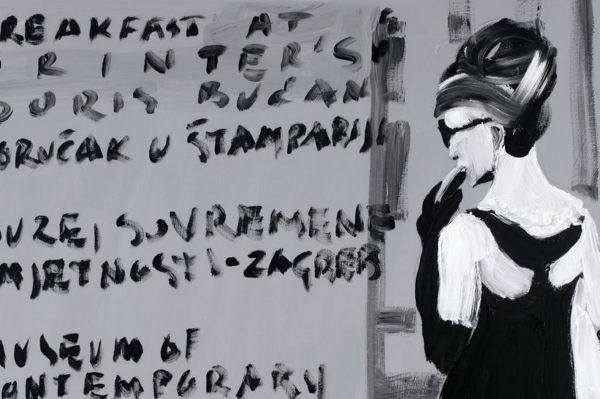 BREAKFAST AT
PRINTER'S
BORIS BUĆAN
DORUČAK U ŠTAMPARIJI
MUZEJ SUVREMENE
UMJETNOSTI-ZAGREB
MUSEUM OF
CONTEMPORARY